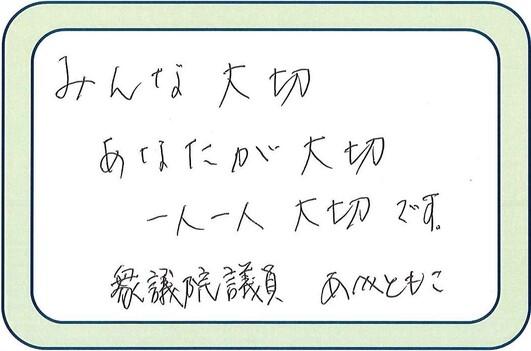 みんな 大切
あなたが 大切
一人一人 大切 です。
衆議院議員 あべともこ